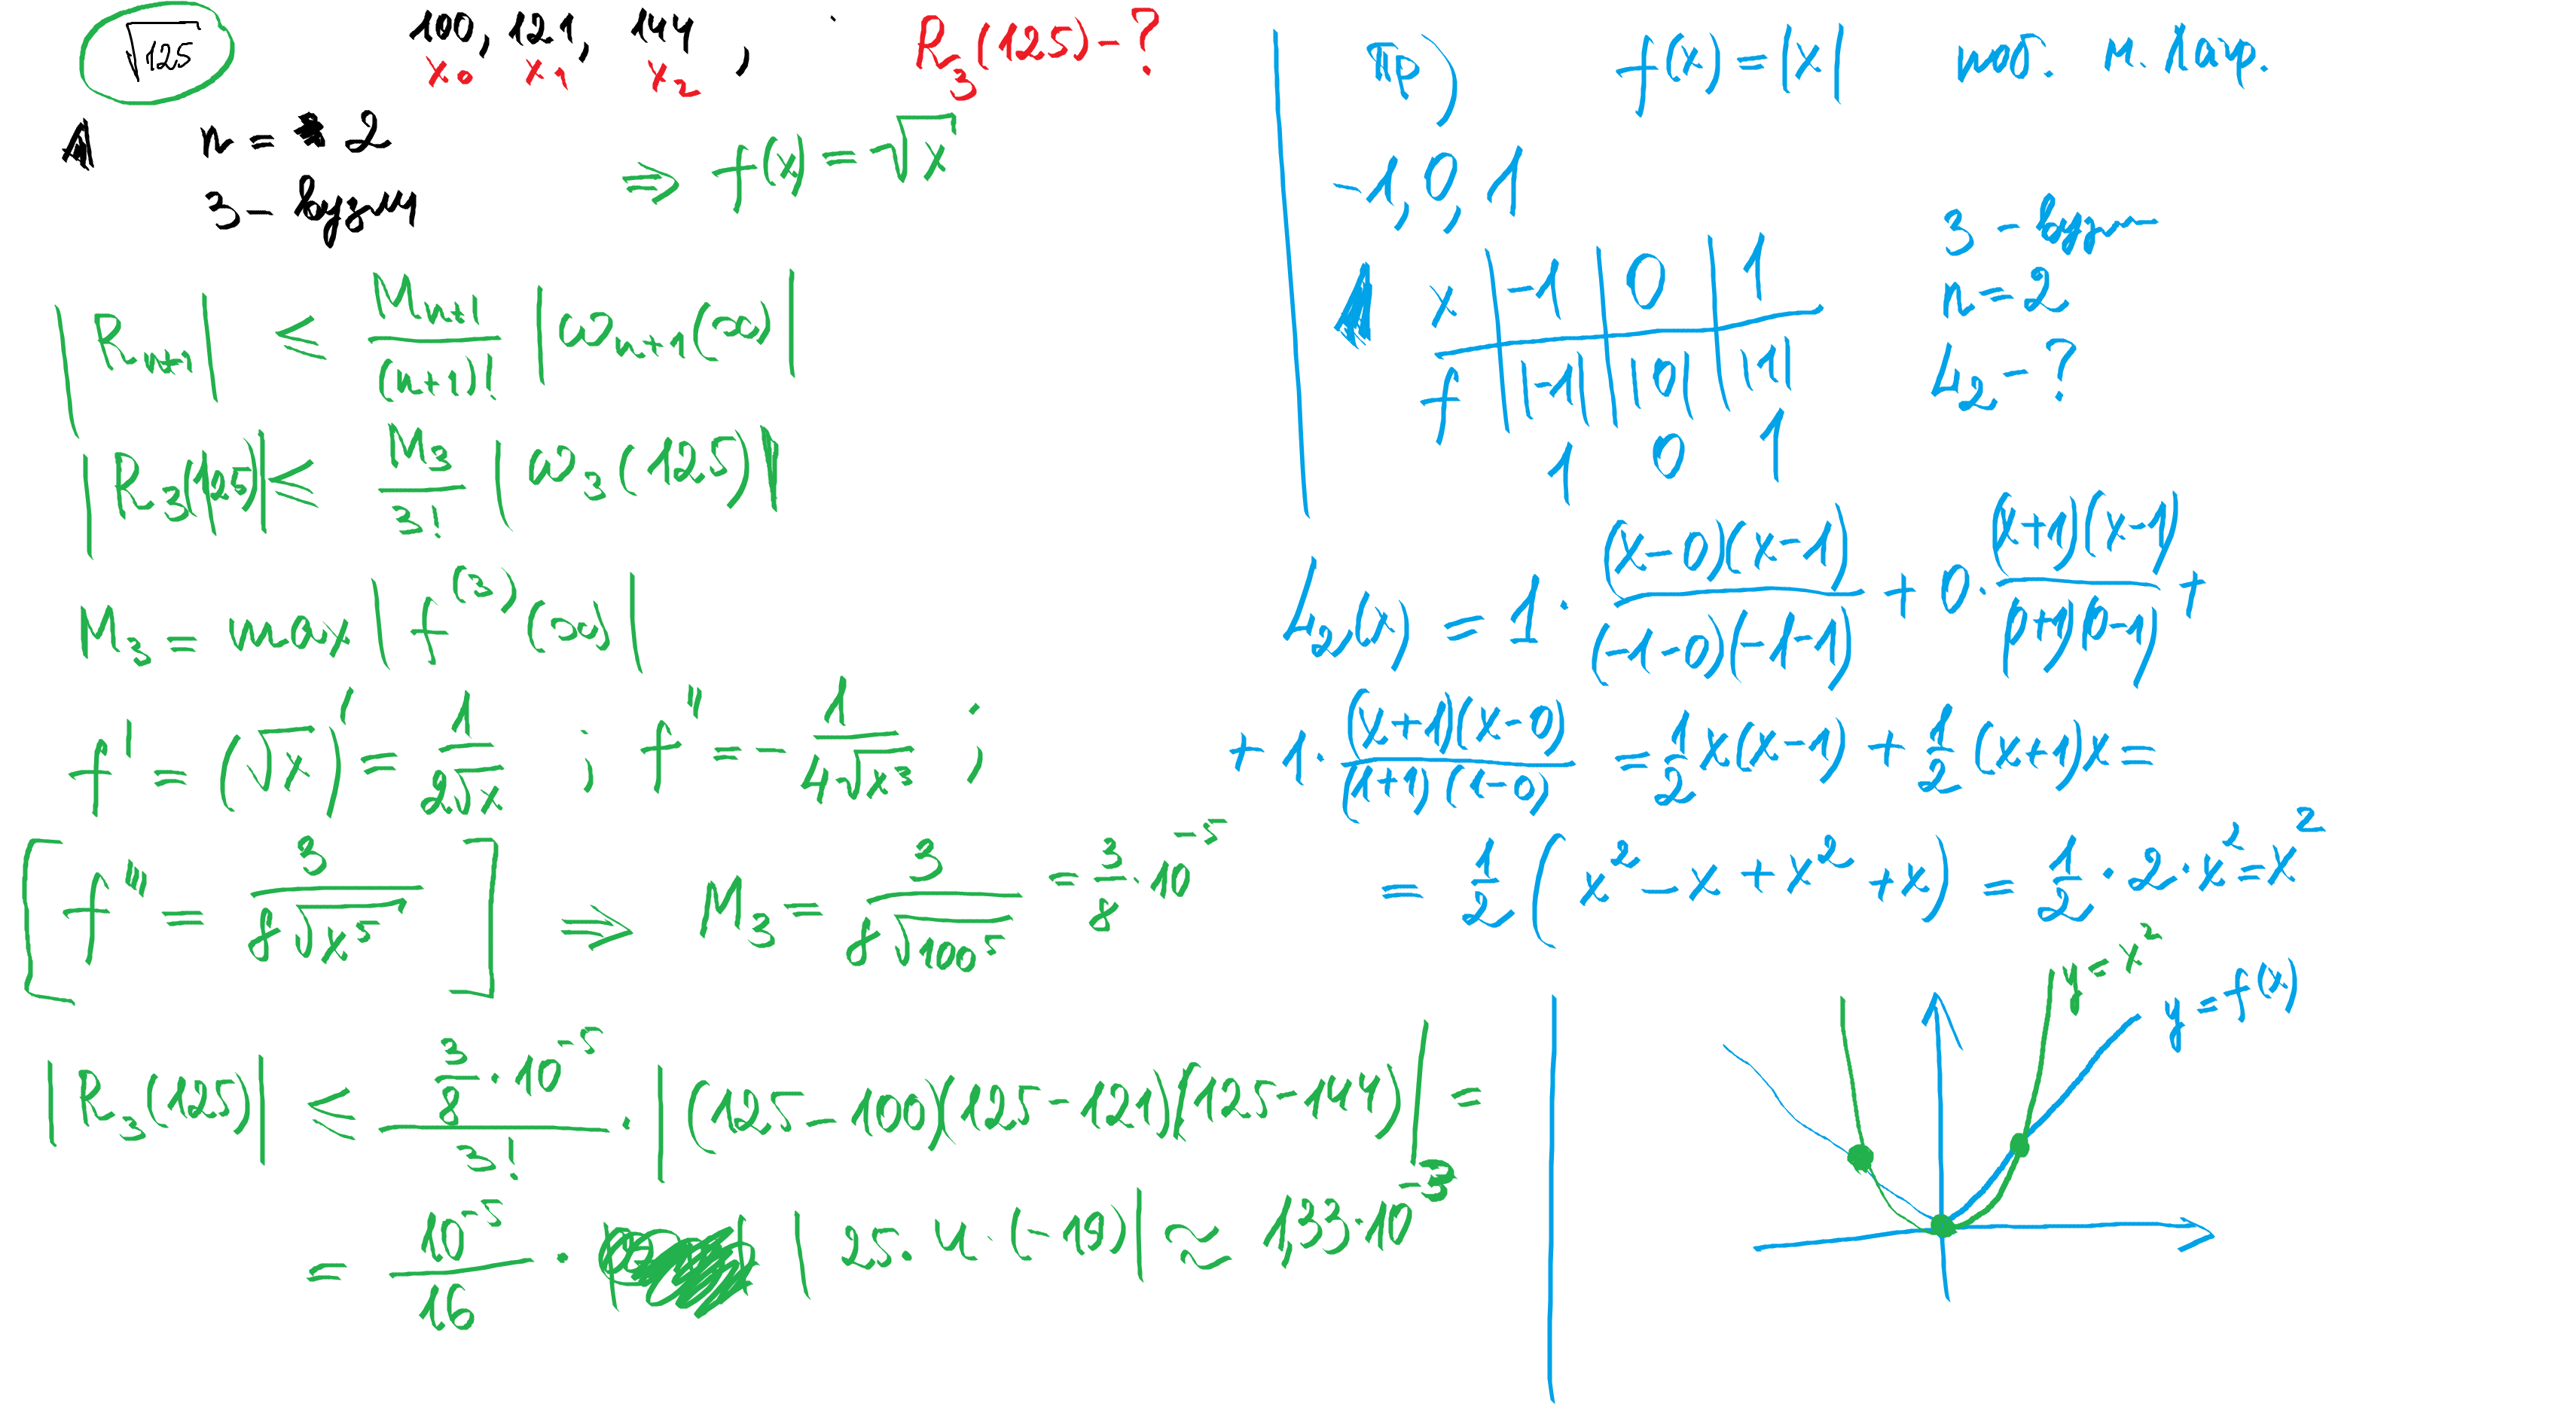 √125    100, 121, 144,    R₃(125) - ?
x₀ x₁ x₂
n = 2    ⇒ f(x) = √x
3 - вузли
|Rₙ₊₁| ≤ Mₙ₊₁/(n+1)! |ωₙ₊₁(x)|
|R₃(125)| ≤ M₃/3! |ω₃(125)|
M₃ = max |f⁽³⁾(x)|
f' = (√x)' = 1/(2√x) ; f'' = - 1/(4√x³) ;
[f''' = 3/(8√x⁵)] ⇒ M₃ = 3/(8√100⁵) = 3/8 · 10⁻⁵
|R₃(125)| ≤ (3/8 · 10⁻⁵)/3! · |(125-100)(125-121)(125-144)| =
= 10⁻⁵/16 · |25 · 4 · (-19)| ≈ 1,33 · 10⁻³
Пр) f(x) = |x| поб. м. Лагр.
-1, 0, 1
3 - вузли
n = 2
L₂ - ?
x | -1 | 0 | 1
f | |-1| | |0| | |1|
1 0 1
L₂(x) = 1 · (x-0)(x-1)/((-1-0)(-1-1)) + 0 · (x+1)(x-1)/((0+1)(0-1)) +
+ 1 · (x+1)(x-0)/((1+1)(1-0)) = 1/2 x(x-1) + 1/2 (x+1)x =
= 1/2 (x² - x + x² + x) = 1/2 · 2 · x² = x²
y = x²
y = f(x)